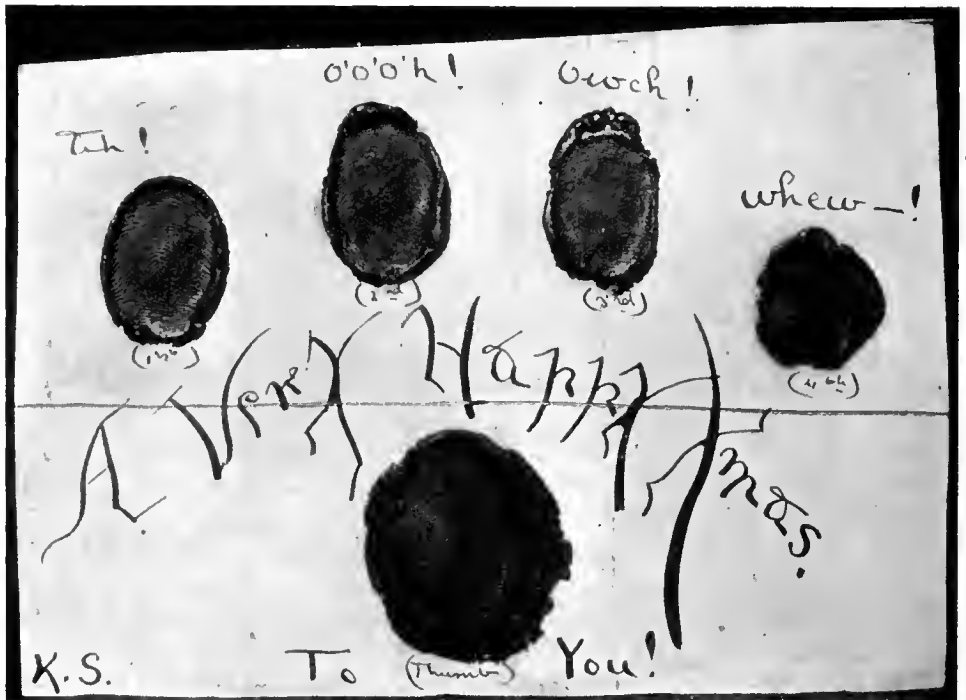 O'o'o'h! Owch!
Tih!
whew—!
(1st) (2nd) (3rd) (4th)
A Very Happy Xmas.
K.S. To (Thumb) You!